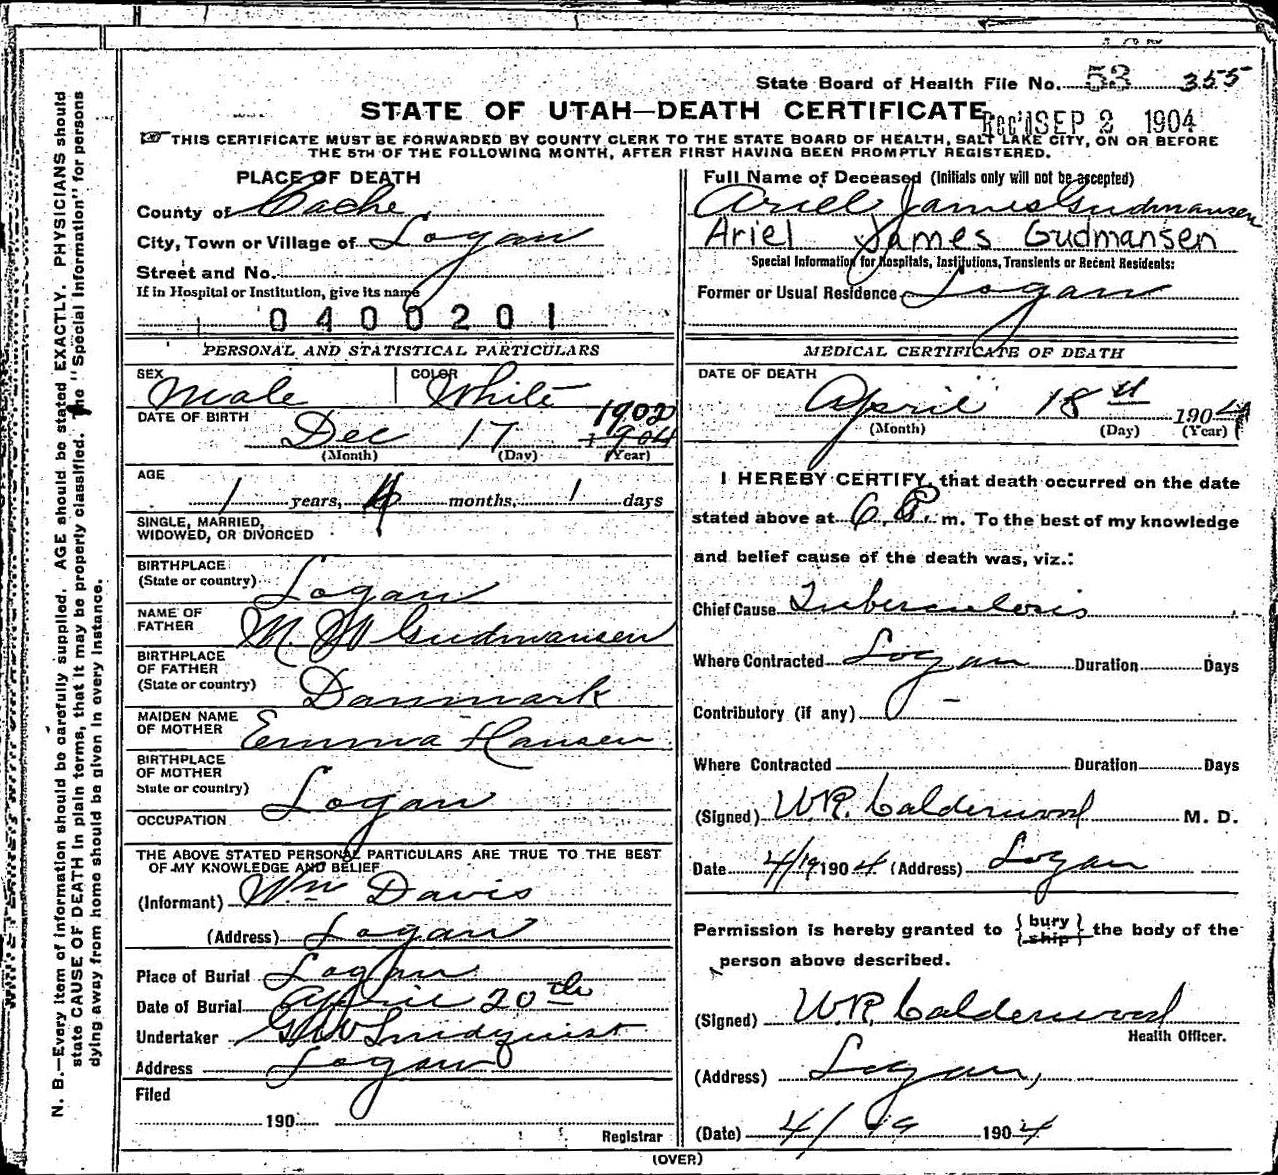 State Board of Health File No. 53 355
STATE OF UTAH—DEATH CERTIFICATE
Rec'd SEP 2 1904
THIS CERTIFICATE MUST BE FORWARDED BY COUNTY CLERK TO THE STATE BOARD OF HEALTH, SALT LAKE CITY, ON OR BEFORE
THE 5TH OF THE FOLLOWING MONTH, AFTER FIRST HAVING BEEN PROMPTLY REGISTERED.
N. B.—Every item of information should be carefully supplied. AGE should be stated EXACTLY. PHYSICIANS should
state CAUSE OF DEATH in plain terms, that it may be properly classified. The "Special Information" for persons
dying away from home should be given in every instance.
PLACE OF DEATH
County of Cache
City, Town or Village of Logan
Street and No.
If in Hospital or Institution, give its name
0400201
PERSONAL AND STATISTICAL PARTICULARS
SEX Male COLOR White
DATE OF BIRTH
1902
Dec 17 1904
(Month) (Day) (Year)
AGE
1 years, 4 months, 1 days
SINGLE, MARRIED,
WIDOWED, OR DIVORCED
BIRTHPLACE
(State or country) Logan
NAME OF
FATHER M M Gudmansen
BIRTHPLACE
OF FATHER
(State or country) Danmark
MAIDEN NAME
OF MOTHER Emma Hansen
BIRTHPLACE
OF MOTHER
State or country) Logan
OCCUPATION
THE ABOVE STATED PERSONAL PARTICULARS ARE TRUE TO THE BEST
OF MY KNOWLEDGE AND BELIEF
(Informant) Wm Davis
(Address) Logan
Place of Burial Logan
Date of Burial April 20th
Undertaker Lindquist
Address Logan
Filed
190
Registrar
Full Name of Deceased (Initials only will not be accepted)
Ariel James Gudmansen
Ariel James Gudmansen
Special Information for Hospitals, Institutions, Transients or Recent Residents:
Former or Usual Residence Logan
MEDICAL CERTIFICATE OF DEATH
DATE OF DEATH
April 18th 1904
(Month) (Day) (Year)
I HEREBY CERTIFY, that death occurred on the date
stated above at 6 P. m. To the best of my knowledge
and belief cause of the death was, viz.:
Chief Cause Tuberculosis
Where Contracted Logan Duration Days
Contributory (if any) –
Where Contracted Duration Days
(Signed) W.R. Calderwood M. D.
Date 4/19 1904. (Address) Logan
Permission is hereby granted to { bury } the body of the
{ ship }
person above described.
(Signed) W.R. Calderwood
Health Officer.
(Address) Logan,
(Date) 4/19 1904
(OVER)